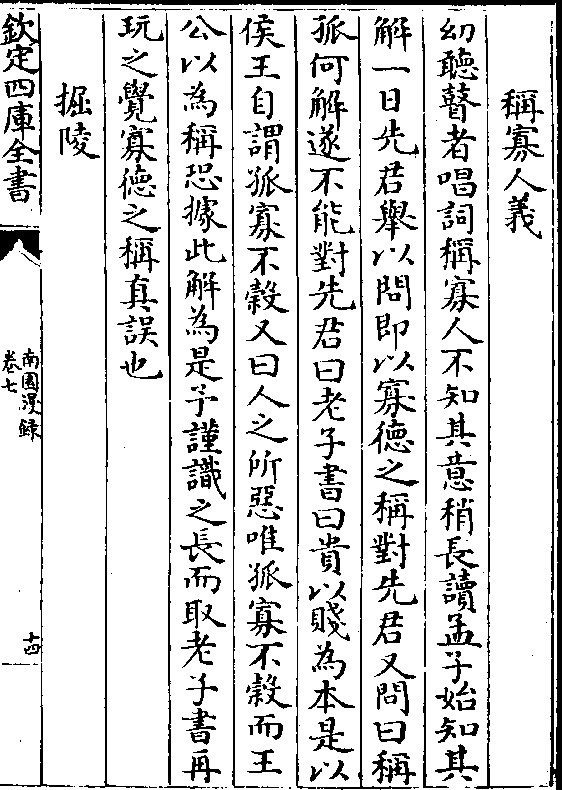 稱寡人義
幻聽瞽者唱詞稱寡人不知其意稍長讀孟子始知其
解一日先君舉以問即以寡德之稱對先君又問曰稱
孤何解遂不能對先君曰老子書曰貴以賤為本是以
侯王自謂孤寡不穀又曰人之所惡唯孤寡不穀而王
公以為稱恐據此解為是予謹識之長而取老子書再
玩之覺寡德之稱真誤也
掘陵
欽定四庫全書
南園漫錄
卷七
十四